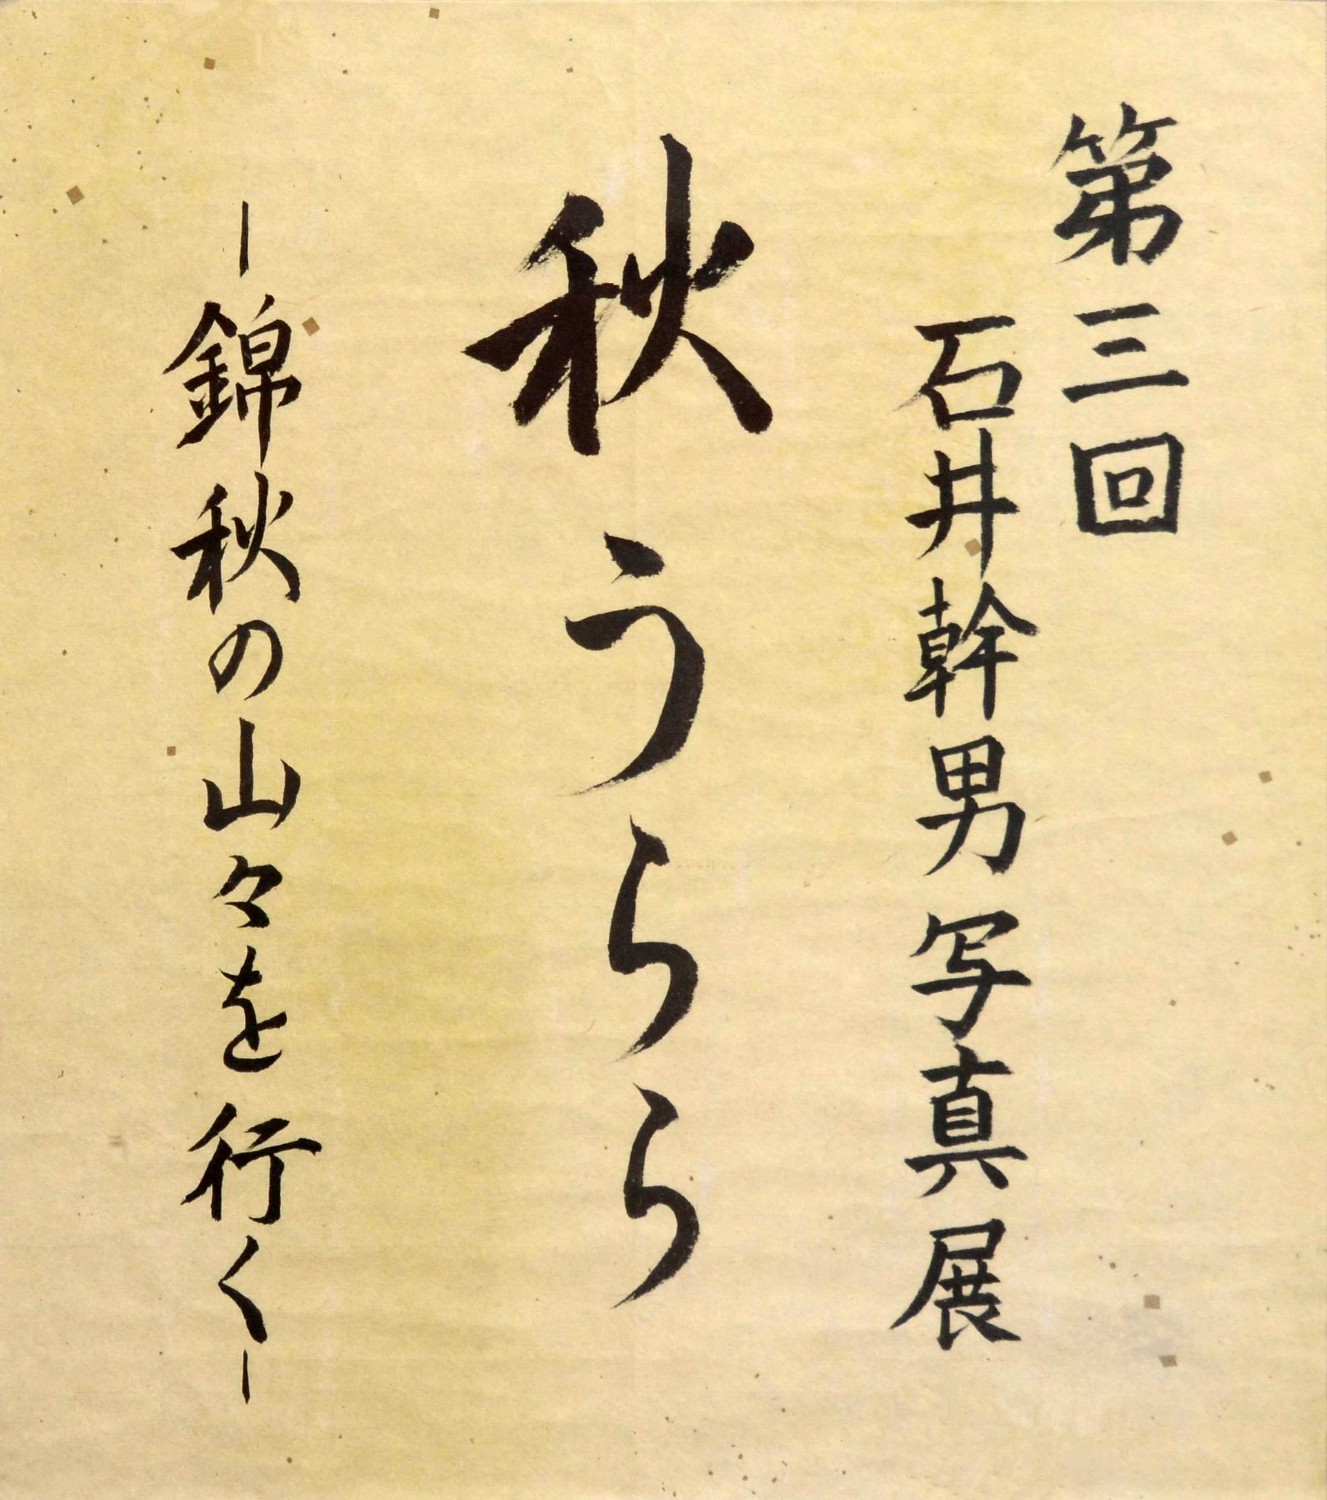 第三回
石井幹男写真展
秋うらら
－錦秋の山々を行く－